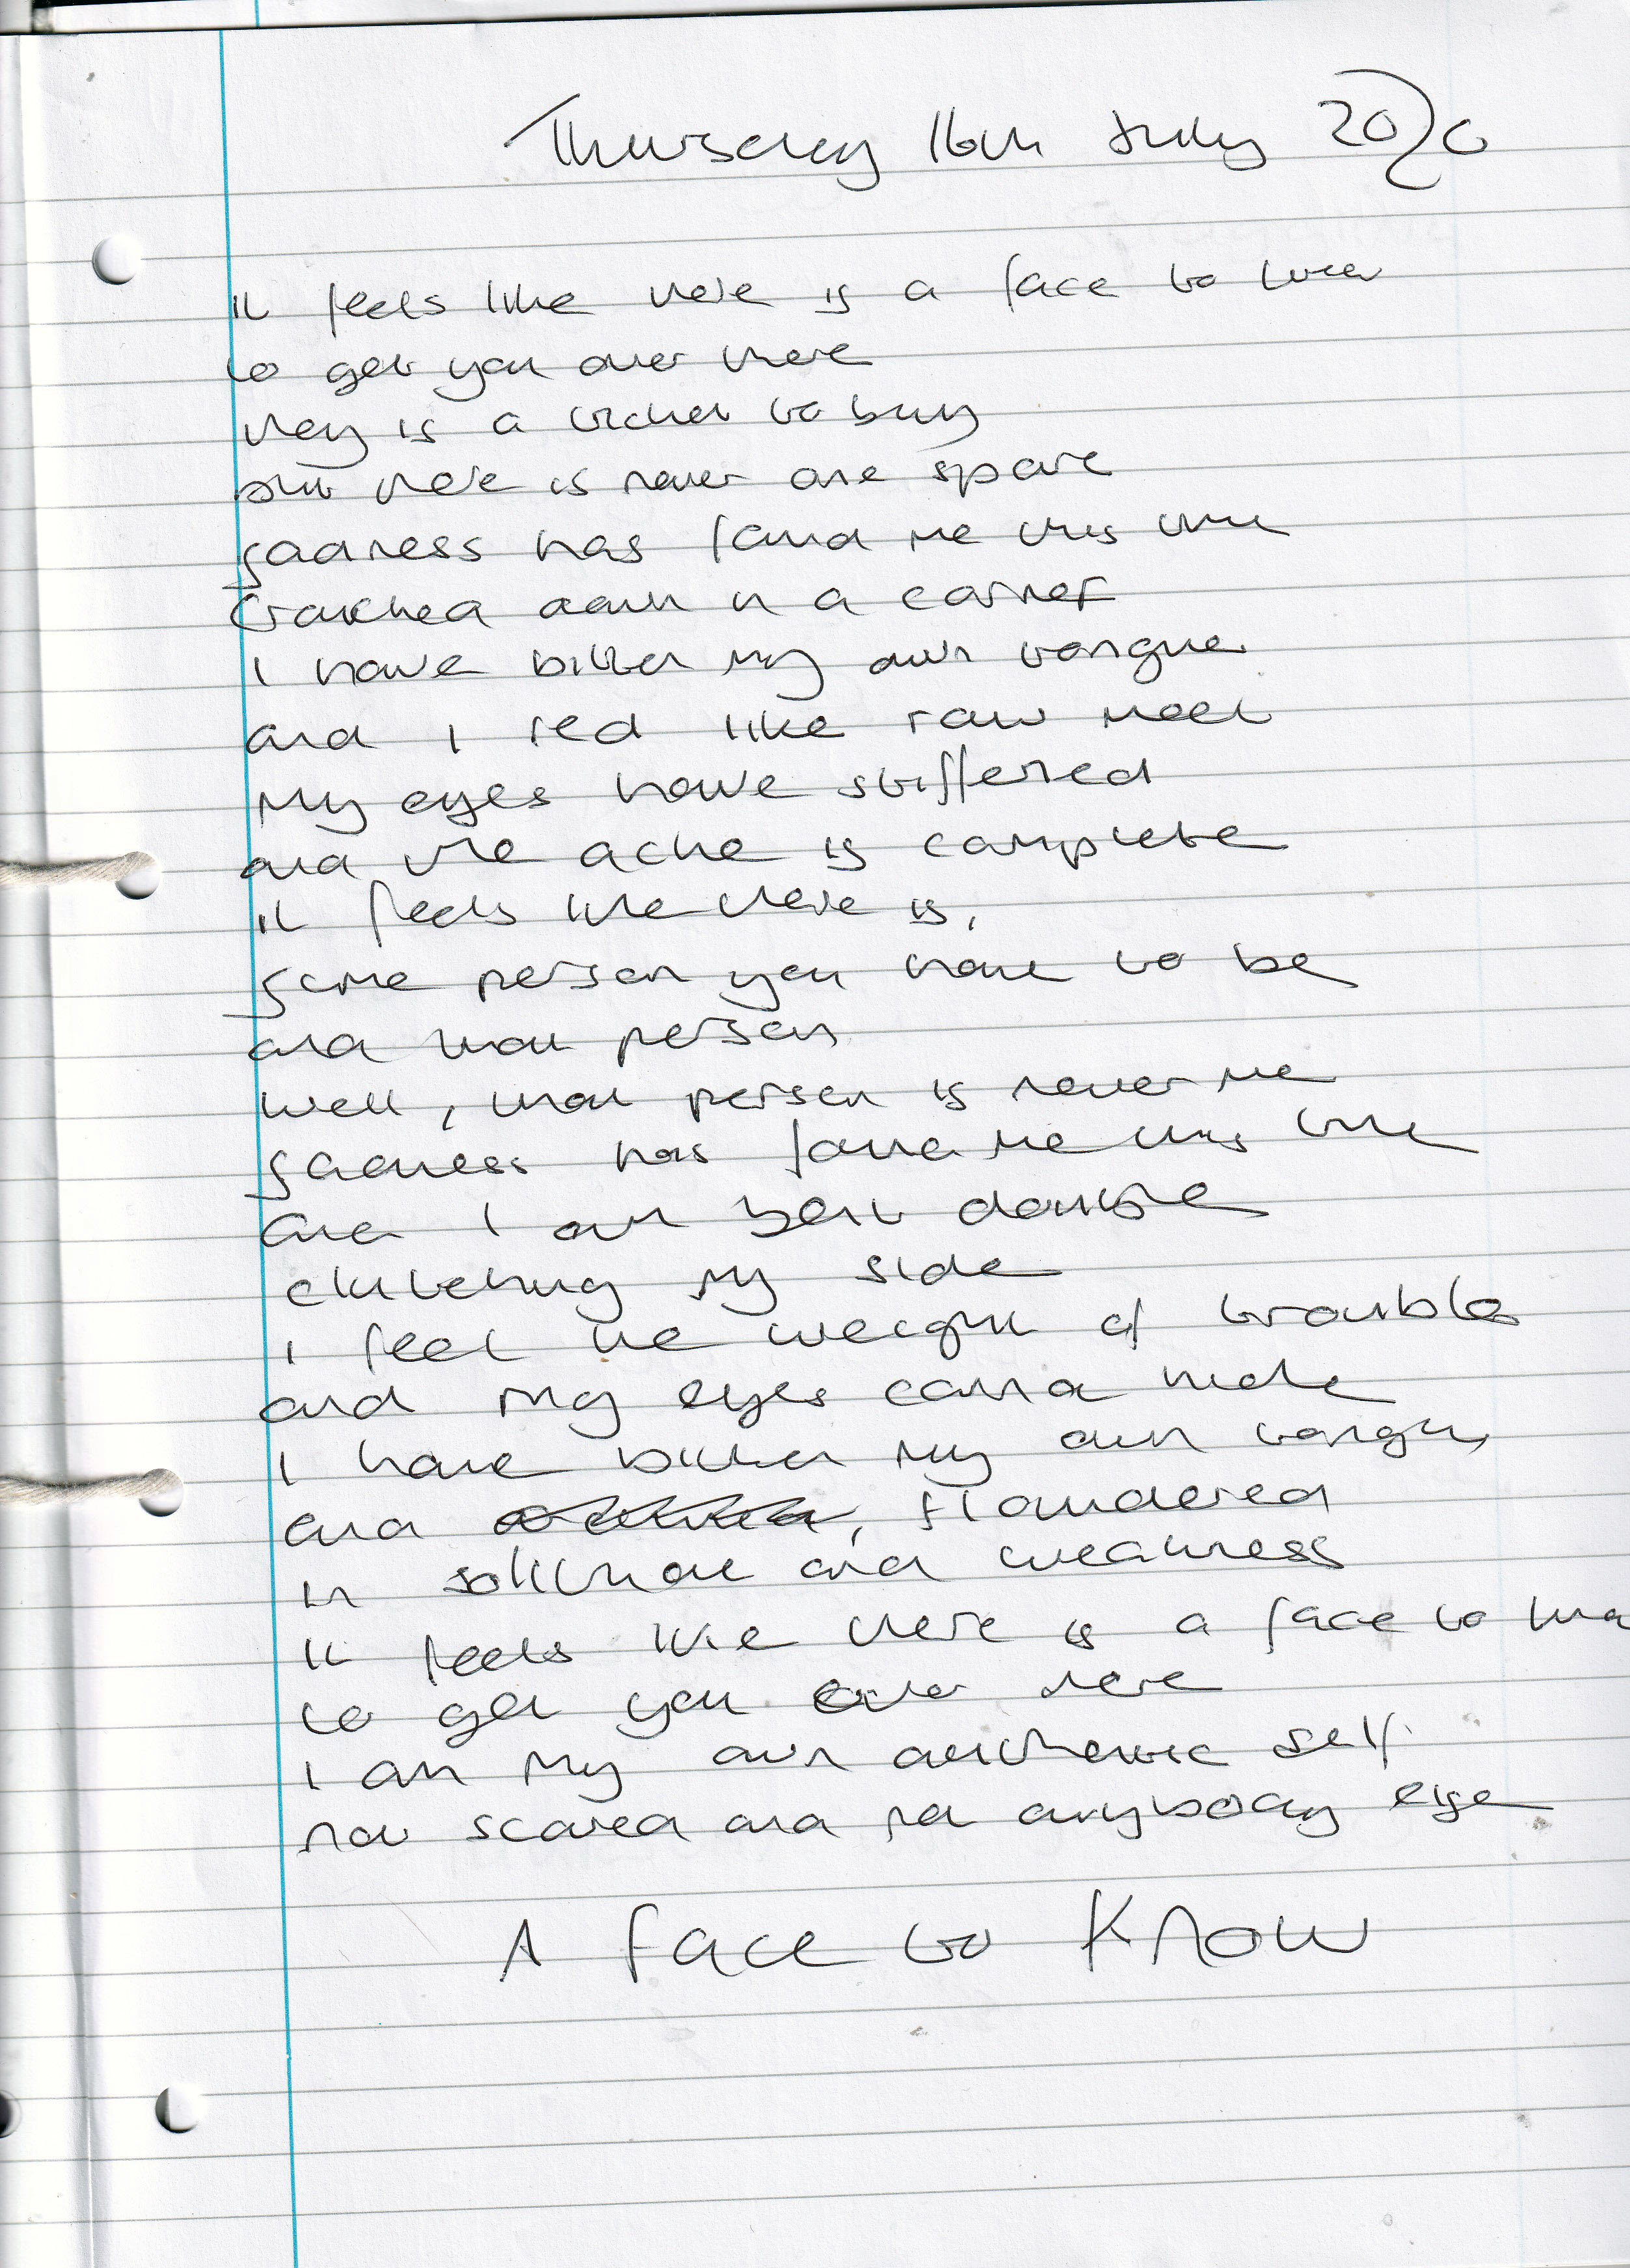 Thursday 16th July 2020
it feels like there is a face to wear
to get you over there
they is a ticket to buy
but there is never one spare
sadness has found me this time
crouched down in a corner
I have bitten my own tongue
and I red like raw meat
My eyes have stiffened
and the ache is complete
it feels like there is,
some person you have to be
and that person
well, that person is never me
sadness has found me this time
and I am bent double
clutching my side
I feel the weight of trouble
and my eyes canna
I have bitten my own tongue
and, floundered
in solitude and weakness
It feels like there is a face to
to get you over there
I am my own authentic self
not scared and not anybody else
A Face to Know